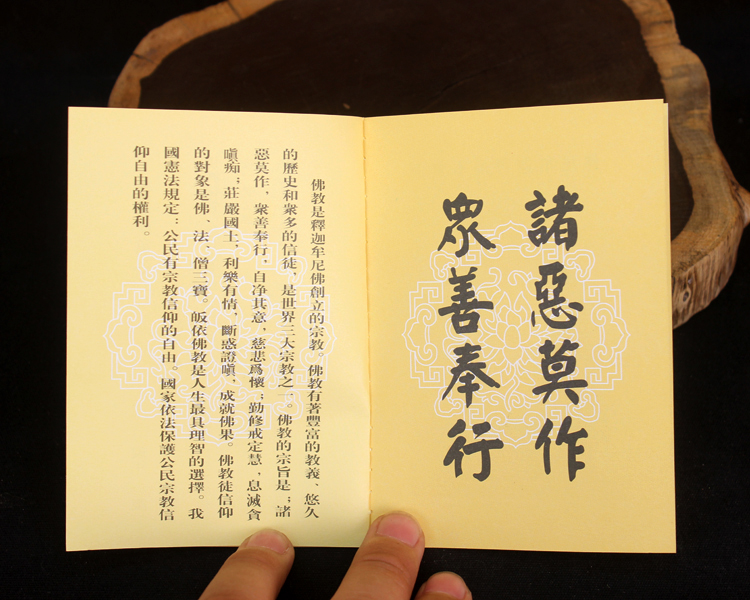 諸惡莫作
眾善奉行
佛教是釋迦牟尼佛創立的宗教。佛教有著豐富的教義、悠久
的歷史和衆多的信徒，是世界三大宗教之一。佛教的宗旨是：諸
惡莫作，衆善奉行，自净其意，慈悲爲懷；勤修戒定慧，息滅貪
嗔痴；莊嚴國土，利樂有情，斷惑證嗔，成就佛果。佛教徒信仰
的對象是佛、法、僧三寶。皈依佛教是人生最具理智的選擇。我
國憲法規定：公民有宗教信仰的自由。國家依法保護公民宗教信
仰自由的權利。